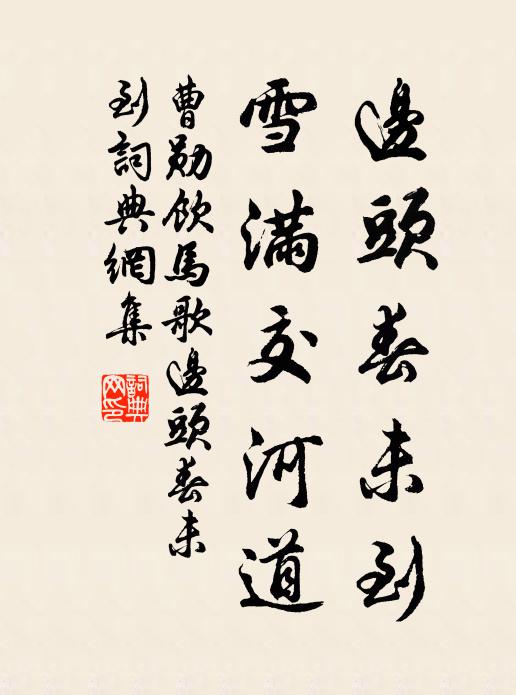 邊頭春未到
雪滿交河道
曹勛飲馬歌邊頭春未
到詞典網集
詞典
网印